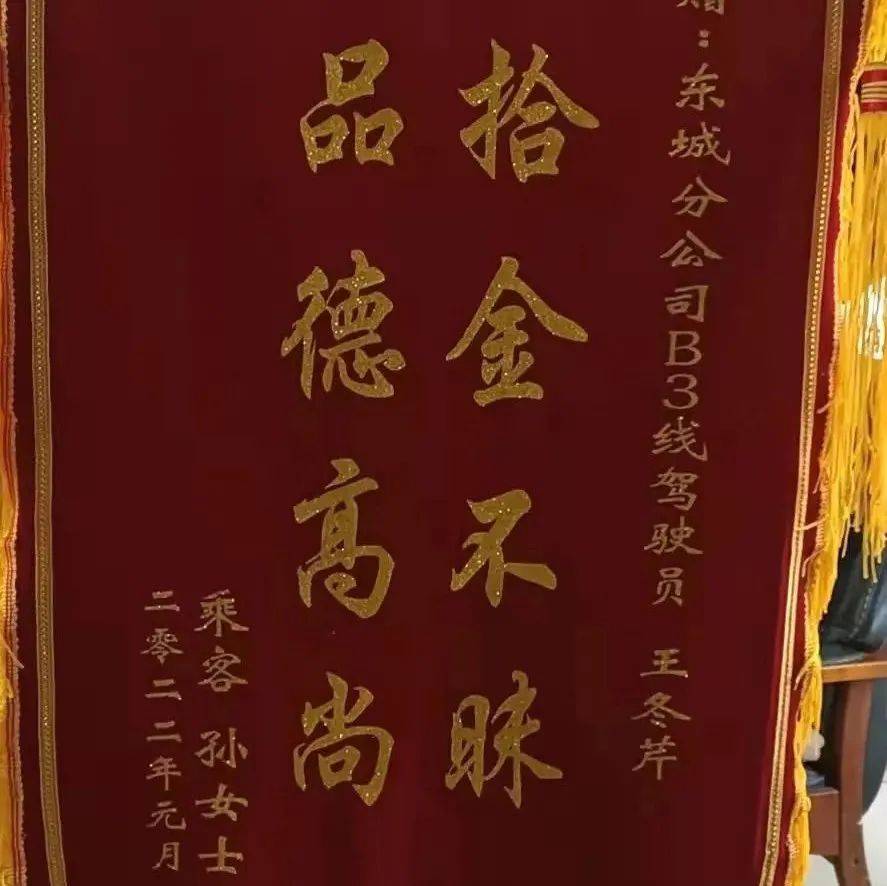 赠：东城分公司B3线驾驶员 王冬芹
拾金不昧
品德高尚
乘客 孙女士
二零二二年元月